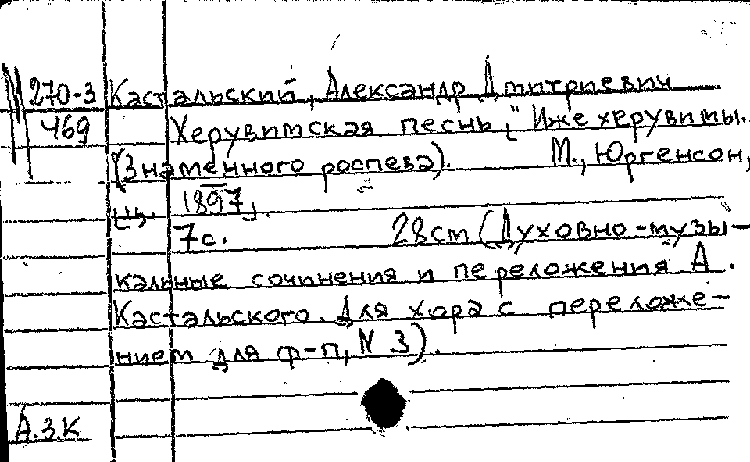 N 270-3 Кастальский, Александр Дмитриевич
469 Херувимская песнь „Иже херувимы."
(Знаменного роспева). М., Юргенсон,
ц. 1897].
7с. 28см (Духовно-музы-
кальные сочинения и переложения А.
Кастальского. Для хора с переложе-
нием для ф-п, N 3).
А.З.К